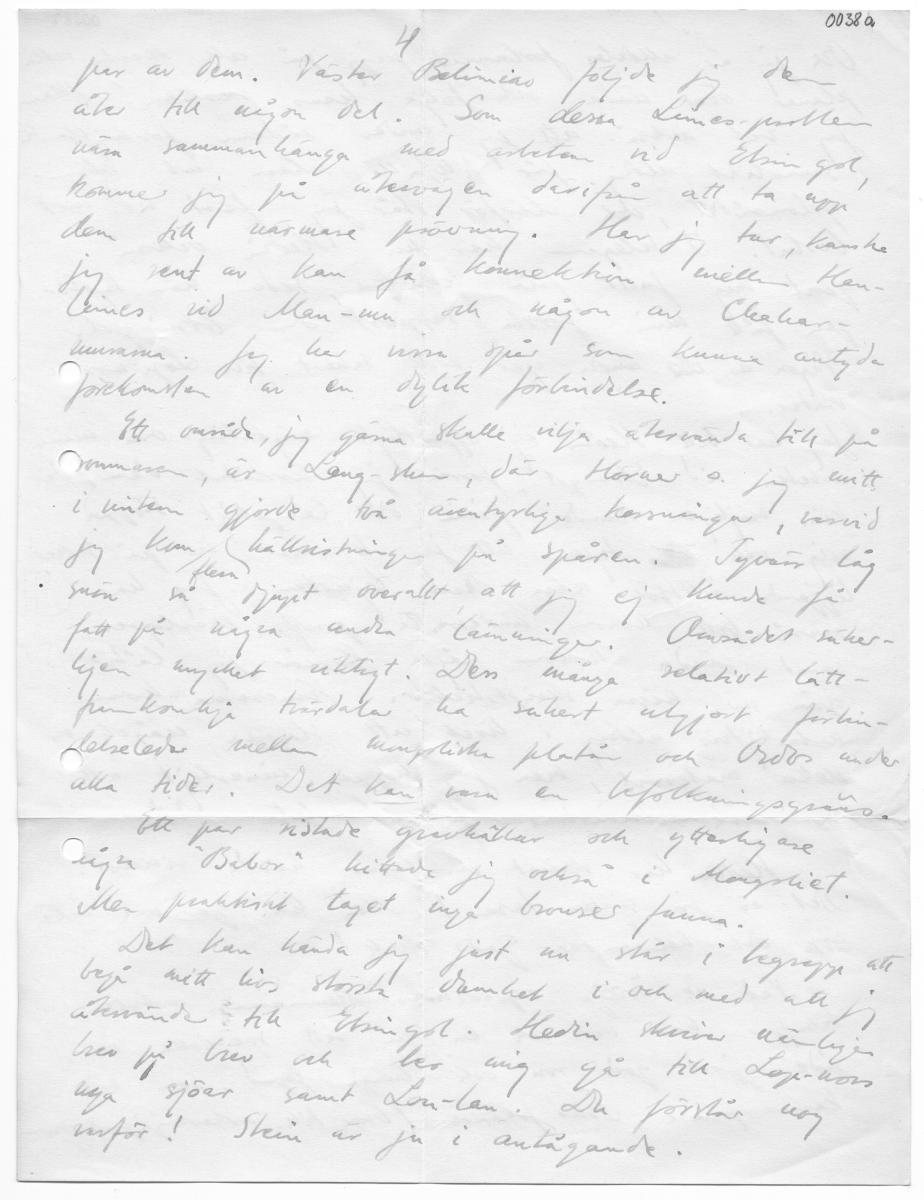 0038a
4
par av dem. Väster Belimiao följde jag dem
åter till någon del. Som dessa Limes-problem
nära sammanhänga med arbeten vid Etsingol,
kommer jag på återvägen därifrån att ta upp
dem till närmare prövning. Har jag tur, kanske
jag rent av kan få konnektion mellan Han-
limes vid Mao-mu och någon av Chahar-
murarna. Jag har vissa spår som kunna antyda
förekomsten av en dylik förbindelse.
Ett område, jag gärna skulle vilja återvända till på
sommaren, är Lang-shan, där Hörner o. jag mitt
i vintern gjorde två äventyrliga korsningar, varvid
jag kom flera hällristningar på spåren. Tyvärr låg
snön så djupt överallt, att jag ej kunde få
fatt på några andra lämningar. Området säker-
ligen mycket viktigt. Dess många relativt lätt-
framkomliga tvärdalar ha säkert utgjort förbin-
delseleder mellan mongoliska platån och Ordos under
alla tider. Det kan vara en befolkningsgräns.
Ett par ristade gravhällar och ytterligare
några "Babor" hittade jag också i Mongoliet.
Men praktiskt taget inga bronser funna.
Det kan hända jag just nu står i begrepp att
begå mitt livs största dumhet i och med att jag
återvänder till Etsingol. Hedin skriver nämligen
brev på brev och ber mig gå till Lop-nors
nya sjöar samt Lou-lan. Du förstår nog
varför! Stein är ju i antågande.